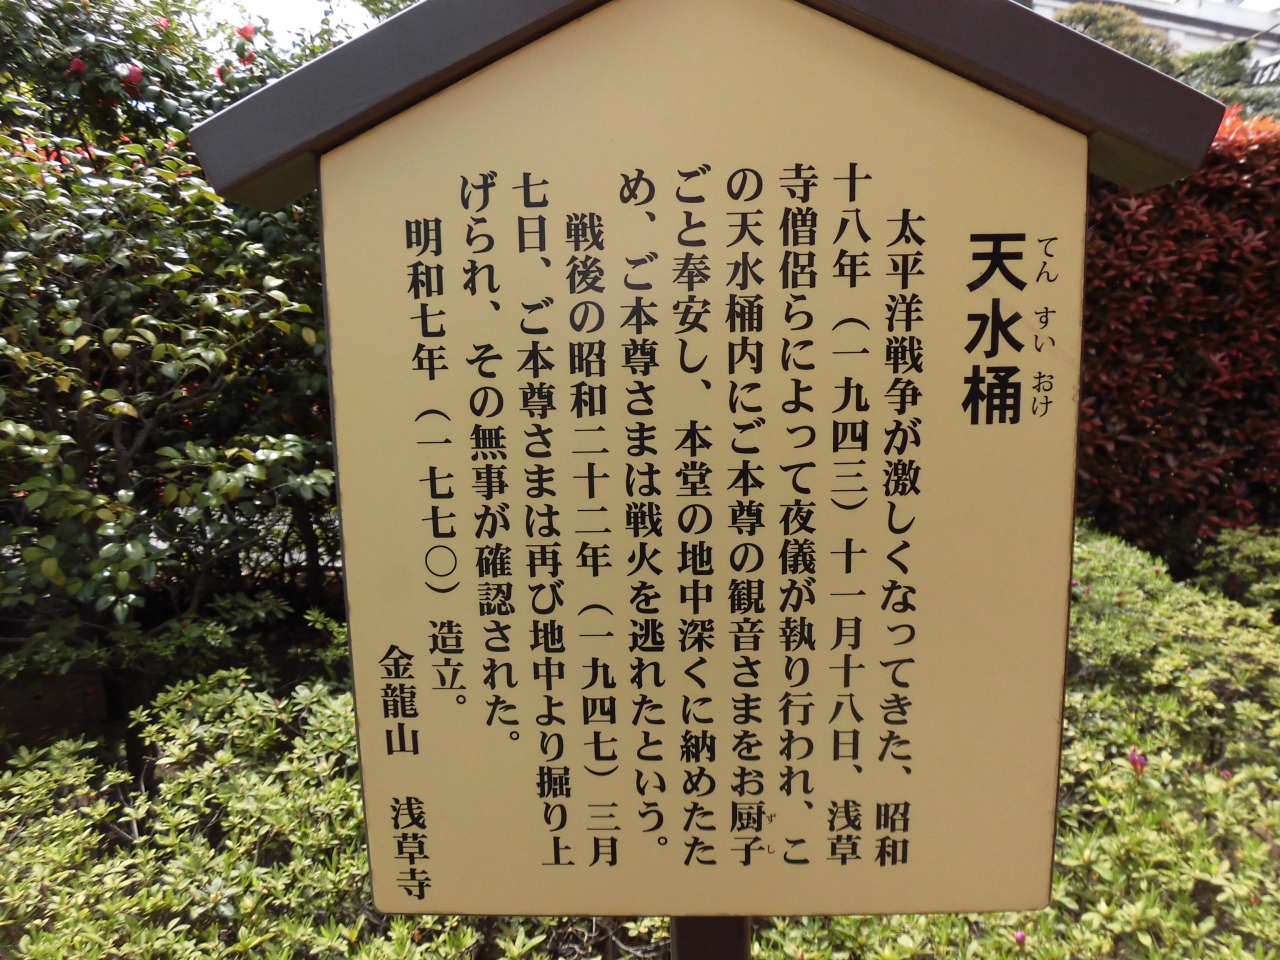 天水桶
てんすいおけ
太平洋戦争が激しくなってきた、昭和
十八年（一九四三）十一月十八日、浅草
寺僧侶らによって夜儀が執り行われ、こ
の天水桶内にご本尊の観音さまをお厨子
ずし
ごと奉安し、本堂の地中深くに納めたた
め、ご本尊さまは戦火を逃れたという。
戦後の昭和二十二年（一九四七）三月
七日、ご本尊さまは再び地中より掘り上
げられ、その無事が確認された。
明和七年（一七七〇）造立。
金龍山　浅草寺